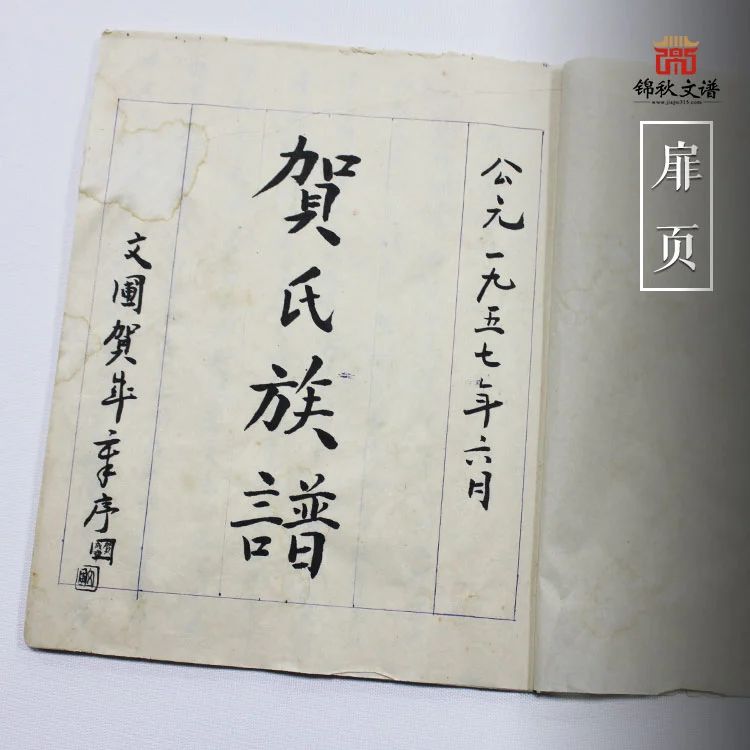 公元一九五七年六月
賀氏族譜
文圃賀年章序
锦秋文谱
www.jiapu315.com
扉页